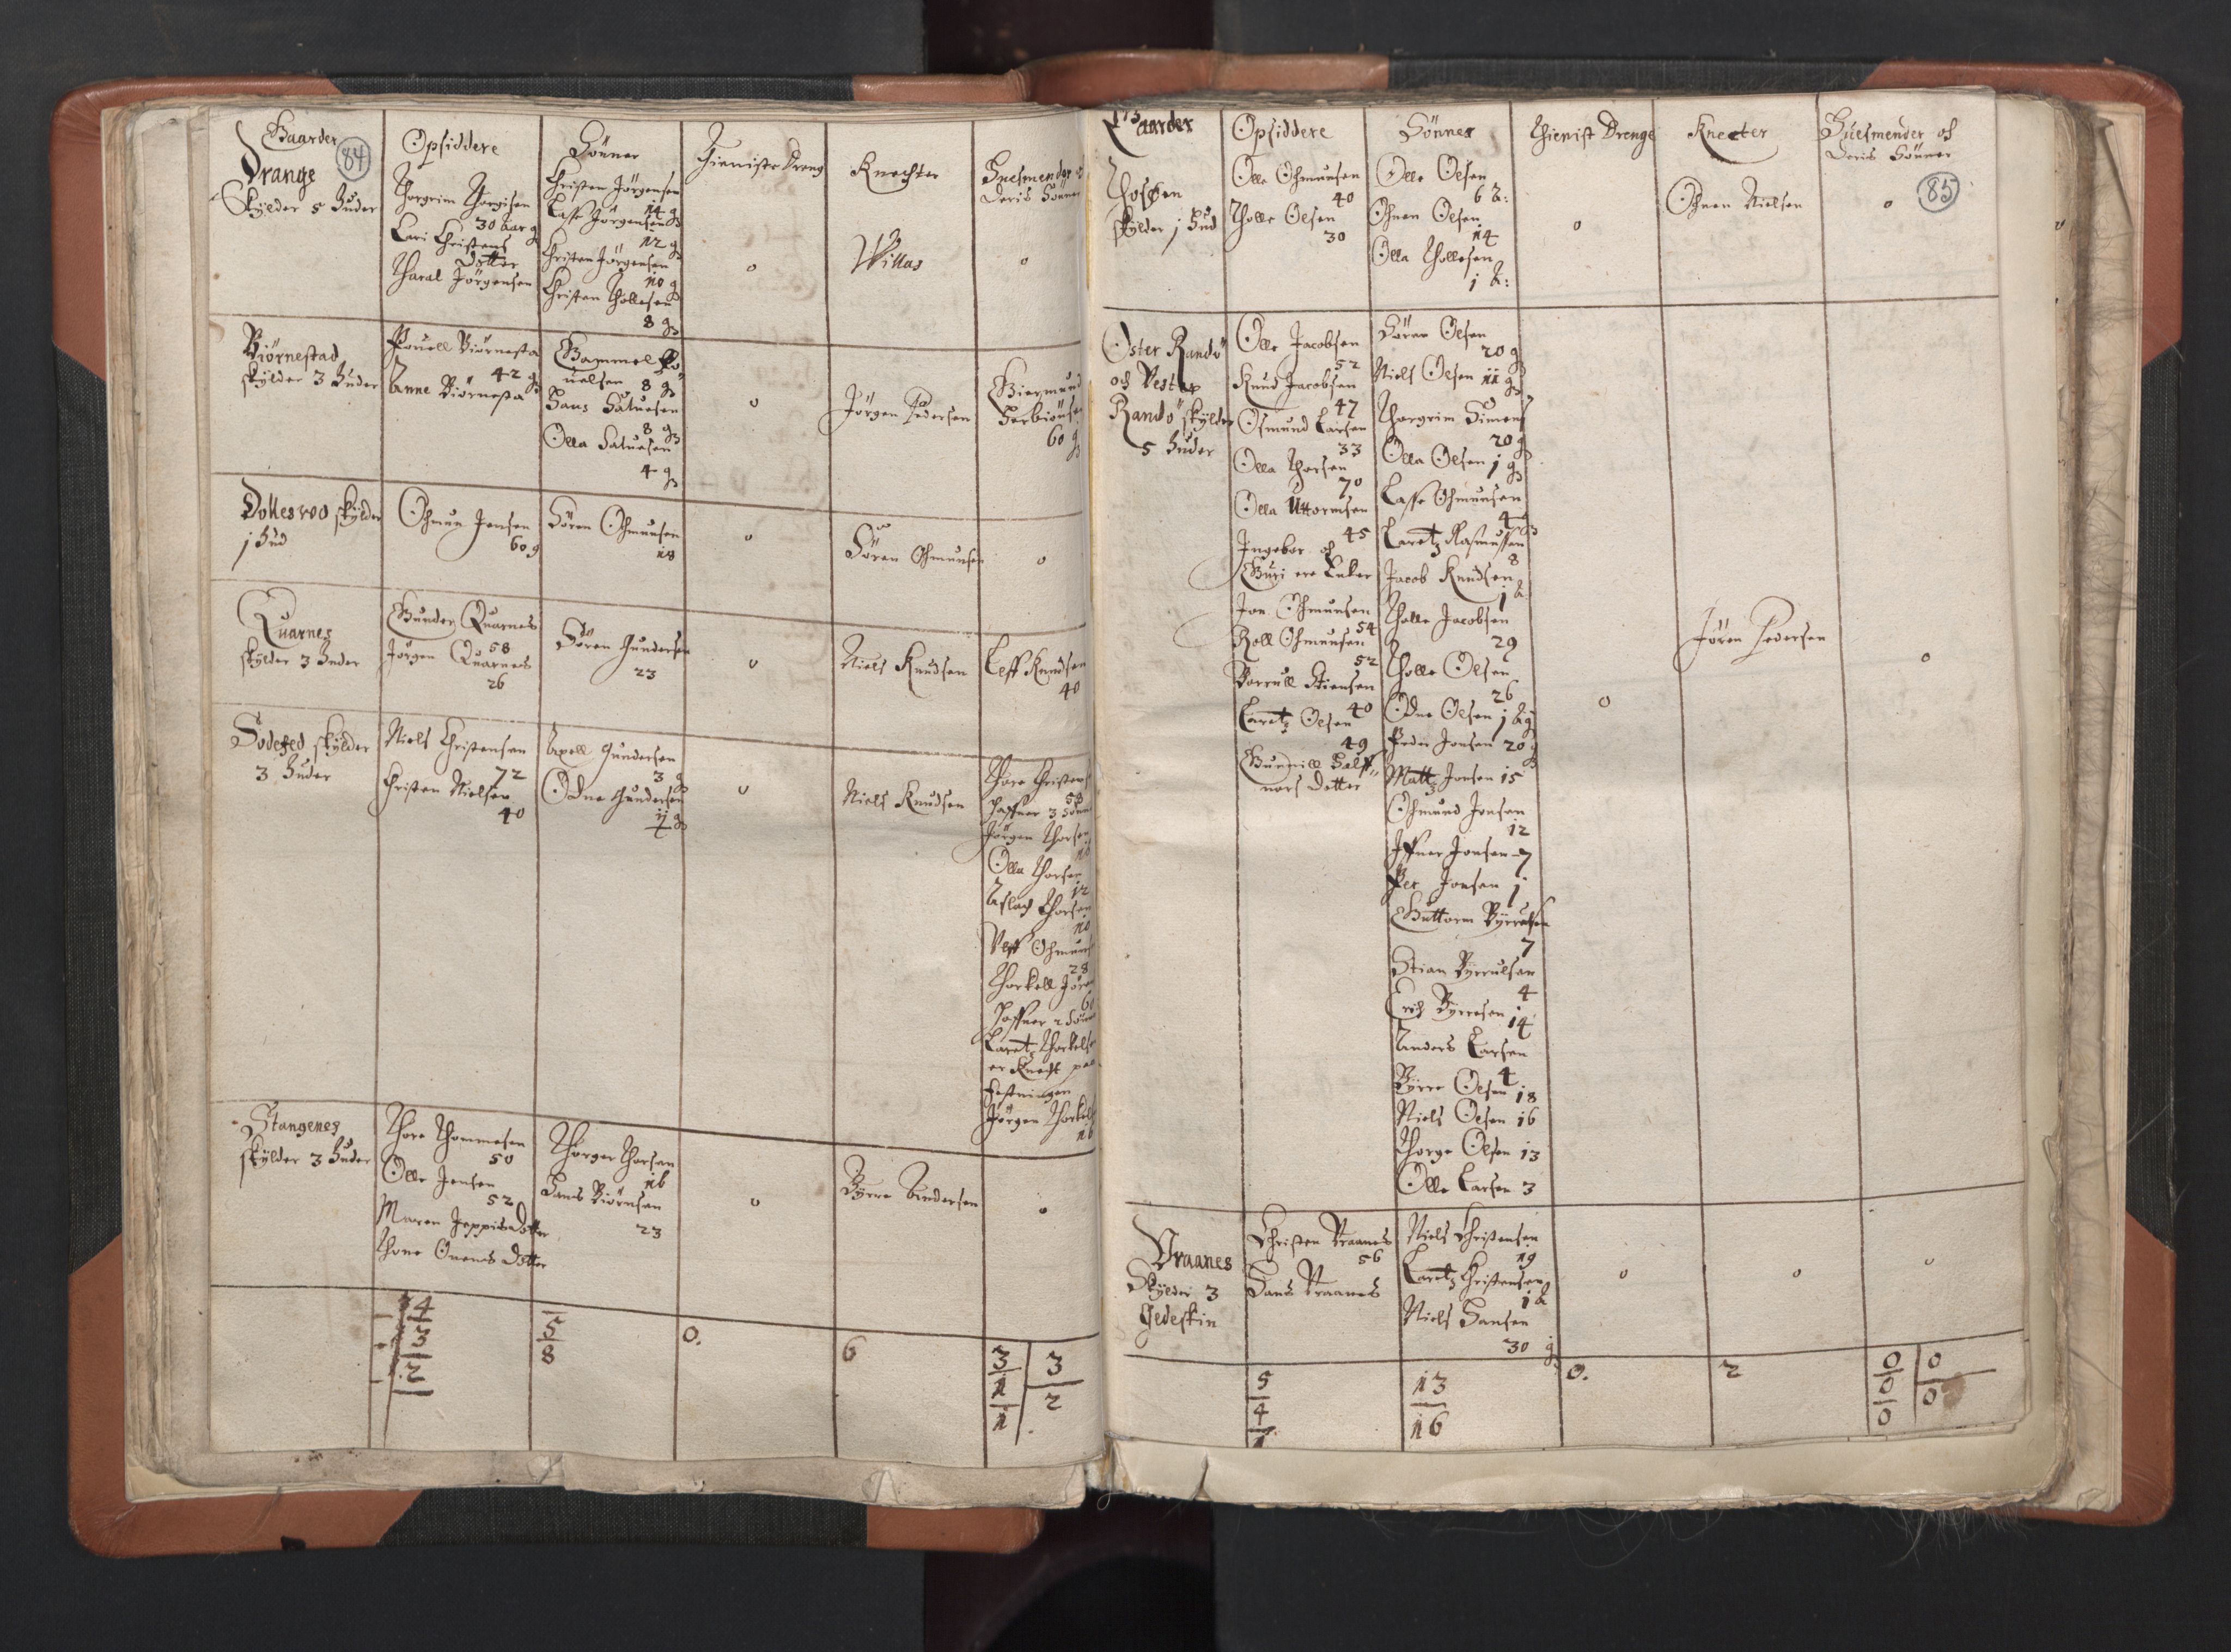 Gaarder
84
Opsiddere
Sönner
Thieniste Dreng
Knechter
Huesmender
Deris Sönner
Drange
Skylder 5 huder
Thorgrim Thorgisen
30 aar
Kari Christens
Dotter
Tharal Jörgensen
Christen Jörgensen
14
Lasse Jörgensen
12
Christen Jörgensen
10
Christen Thollesen
8
0
Willas
0
Biörnestad
skylder 3 huder
Pouell Biörnesta
42
Anne Biörnesta
Gammel Po
uelsen 8
Hans Saluesen
8
Olla Saluesen
4
0
Jörgen Pedersen
Giermund
60
skylder
1 hud
Ohmun Jensen
60
Sören Ohmunsen
18
0
Sören Ohmunsen
0
Quarnes
skylder 3 huder
Gunder Quarnes
58
Jörgen Quarnes
26
Sören Gundersen
23
0
Niels Knudsen
Leff Knudsen
40
skylder
3 huder
Niels Christensen
72
Christen Nielsen
40
Axell Gundersen
3
Odne Gundersen
0
Niels Knudsen
Thore Christens
haffuer 3 Sönner
Jörgen Thorsen
Olla Thorsen
12
Aslach Thorsen
10
Ohmuns
28
Thorkell
60
haffuer 2 Sönner
Laretz Thorkels
er Knecht paa
festningen
Jörgen Thorkels
16
Stangenes
skylder 3 huder
Thore Thommesen
50
Olle Jensen
52
Maren Jeppis Dotter
Thone Onens Dotter
Thorger Thorsen
16
Hans Biörnsen
23
0
Byrre Andersen
0
14
5
2
5
8
0.
6
3
1
1
3
2
Gaarder
Opsiddere
Sönner
Thienist Drenge
Knecter
Huesmender och
Deris Sönner
85
skylder 1 hud
Olle Ohmunsen
40
Tholle Olsen
30
Olle Olsen
6
Ohnen Olsen
14
Olla Thollesen
1
0
Ohnen Nielsen
0
Öster Randö
och Vester
Randö skylder
5 huder
Olle Jacobsen
52
Knud Jacobsen
47
Osmund Larsen
33
Olla Thorsen
70
Olla Uttormsen
45
Ingebor och
Guri ere Enker
Jon Ohmunsen
54
Roll Ohmunsen
52
Borrull Stiensen
40
Laretz Olsen
49
Gunnill Half
nors Dotter
Sören Olsen
20
Niels Olsen 11
Thorgrim Simens
20
Olla Olsen 1
Lasse Ohmunsen
4
Laretz Rasmussen
8
Jacob Knudsen
1
Tholle Jacobsen
29
Tholle Olsen
26
Odne Olsen 1
Peder Jonsen 20
Mattz Jonsen 15
Ohmund Jonsen
12
Iffuer Jonsen 7
Per Jonsen 1
Guttorm Byrrulsen
7
Stian Byrrulsen
4
Erich Byrresen
14
Anders Larsen
4
Byrre Olsen 18
Niels Olsen 16
Thorge Olsen 13
Olle Larsen 3
0
Jören Pedersen
0
Vraanes
Skylder 3
Gedeskin
Christen Vraanes
56
Hans Vraanes
Niels Christensen
19
Laretz Christensen
1
Niels Hansen
30
0
0
0
5
4
1
13
16
0.
2
0
0
0
0
0